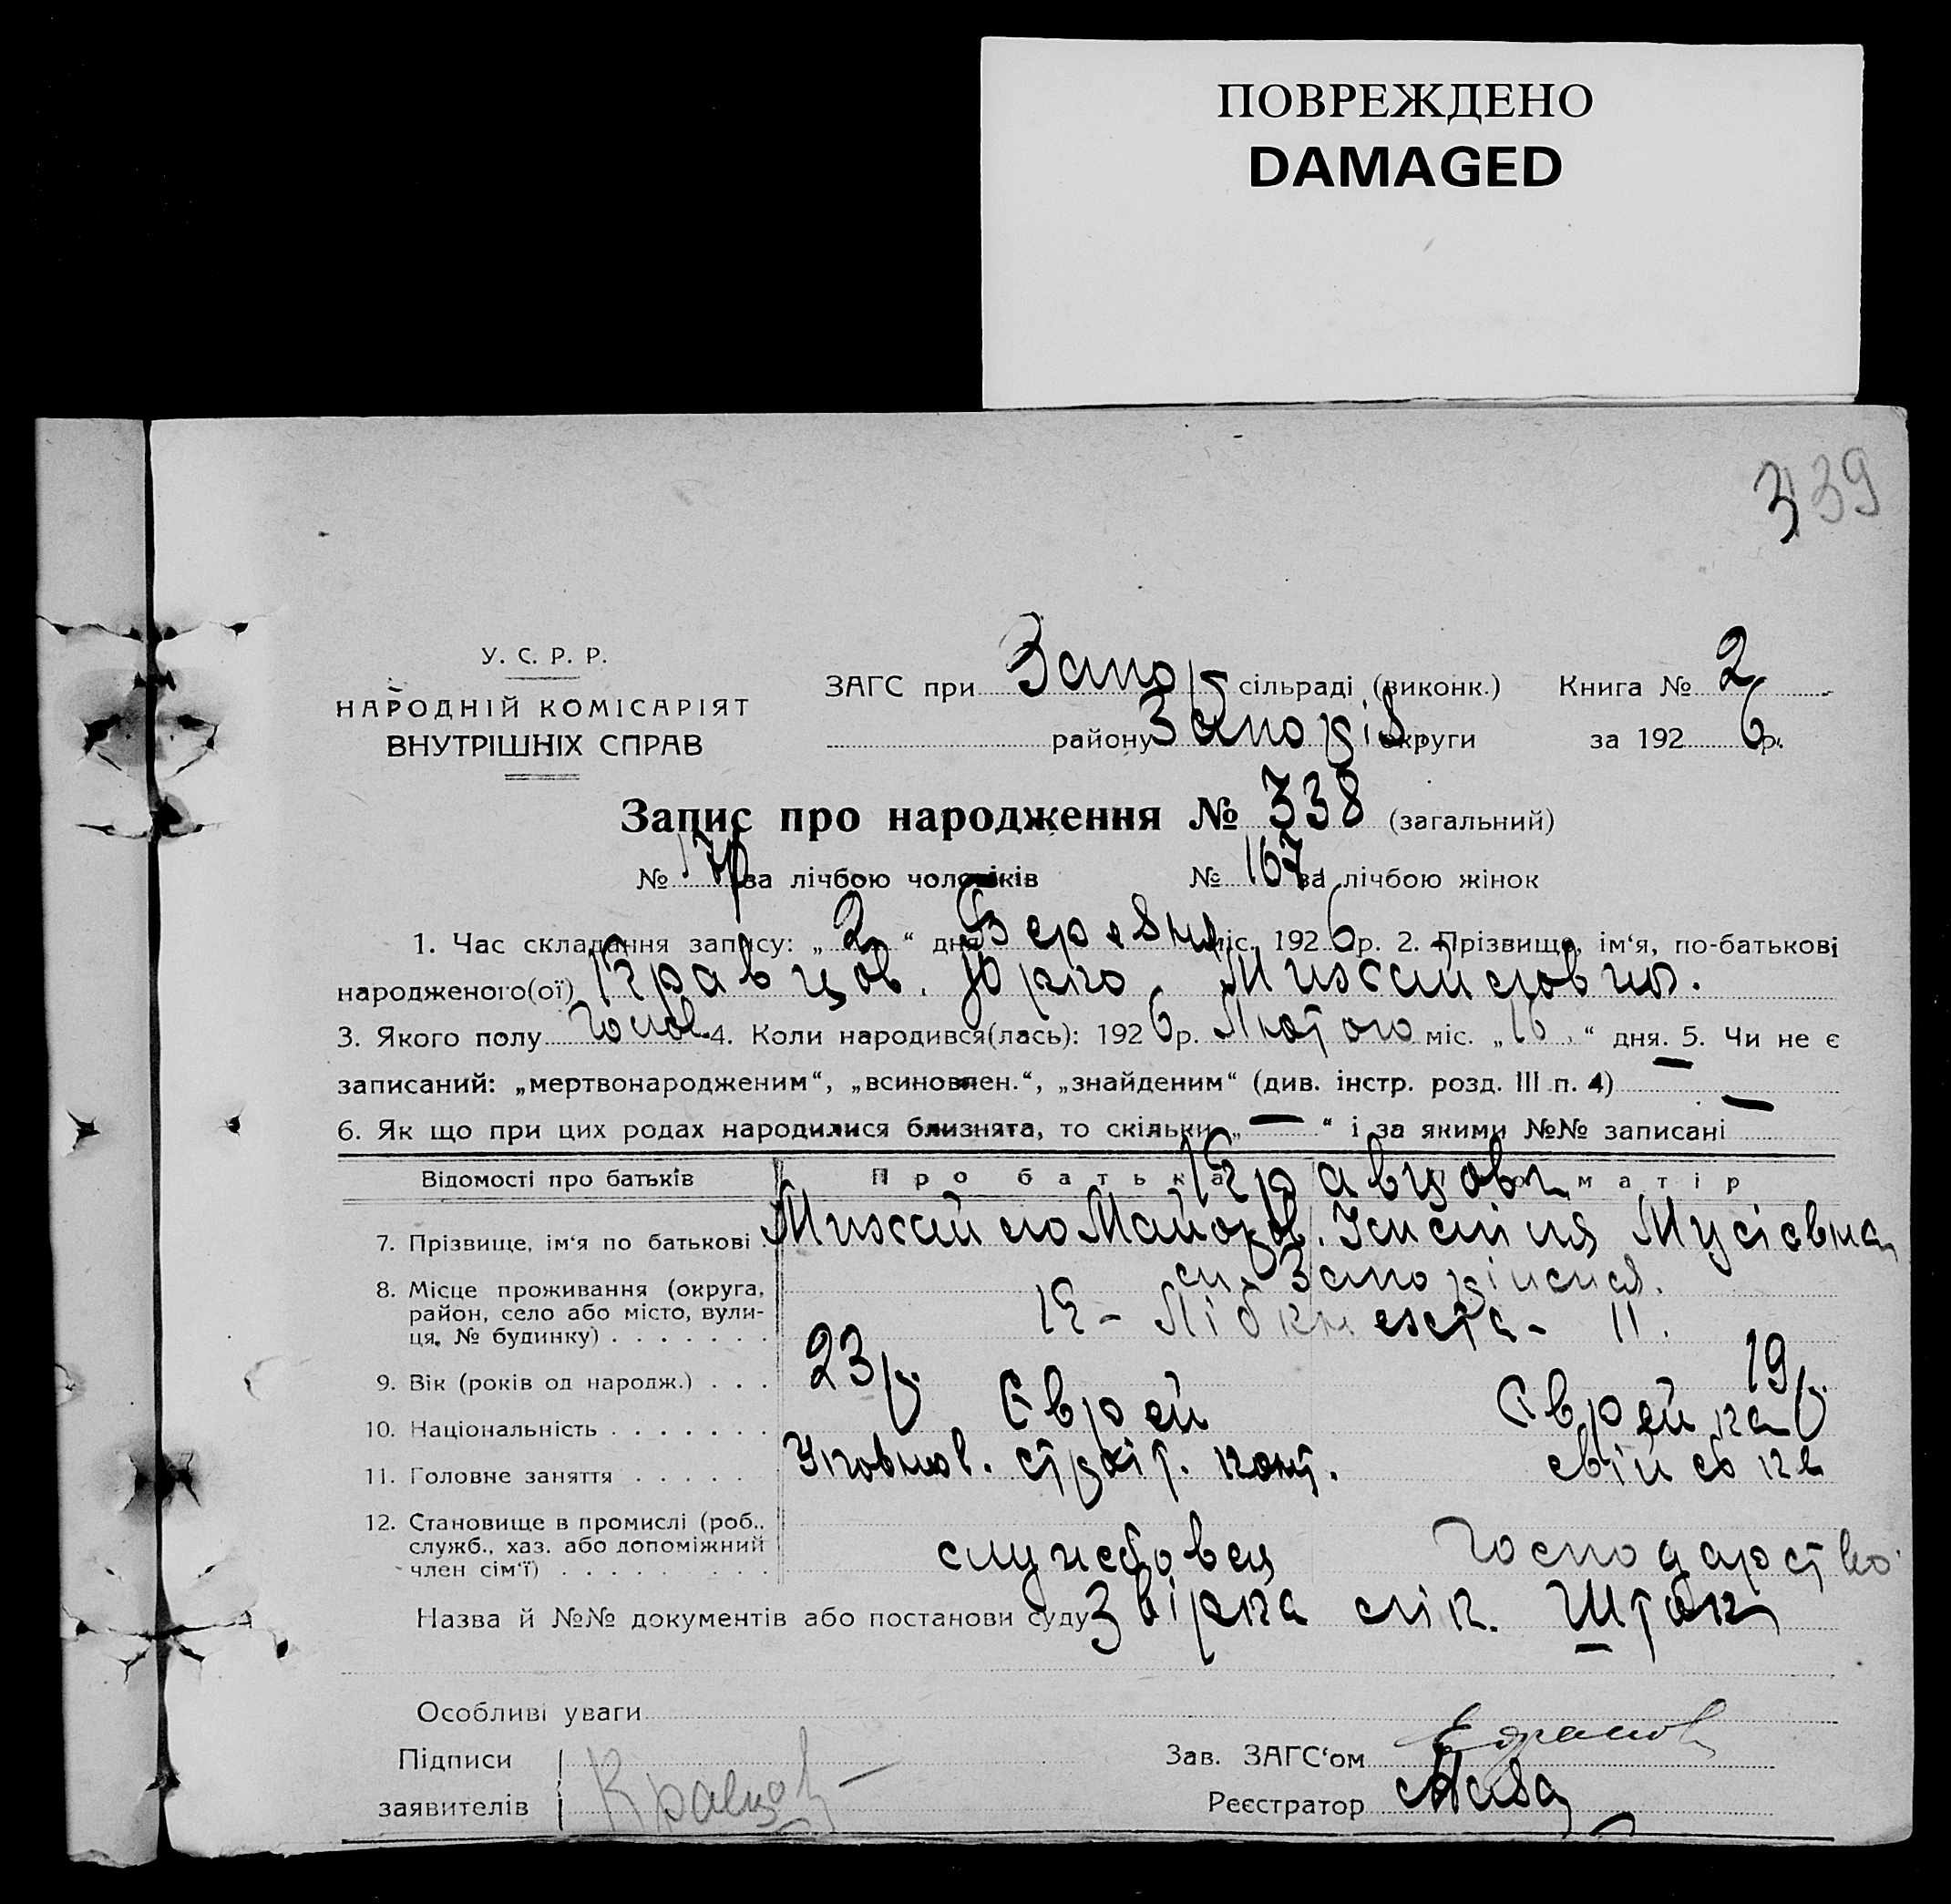 ПОВРЕЖДЕНО
DAMAGED
339
У. С. Р. Р.
НАРОДНІЙ КОМІСАРІЯТ
ВНУТРІШНІХ СПРАВ
ЗАГС при Запор сільраді (виконк.) Книга № 2
району Запоріз округи за 1926 р.
Запис про народження № 338 (загальний)
№ за лічбою чоловіків № 167 за лічбою жінок
1. Час складання запису: „ 2 “ дня Березня міс. 1926 р. 2. Прізвище, ім‘я, по-батькові
народженого(ої) Кравцов. Юрко. Михайлович.
3. Якого полу Чолов. 4. Коли народився(лась): 1926 р. Лютого міс. „ 16 “ дня. 5. Чи не є
записаний: „мертвонародженим“, „всиновлен.“, „знайденим“ (див. інстр. розд. III п. 4) —
6. Як що при цих родах народилися близнята, то скільки „ — “ і за якими №№ записані —
Відомості про батьків Про батька Кравцови матір
7. Прізвище, ім‘я по батькові Михайло Майоров. Мусієвна
8. Місце проживання (округа, район, село або місто, вулиця, № будинку) м. Запоріжжя.
К - Лібкнехта - 11.
9. Вік (років од народж.) 23 р. 19 р.
10. Національність Єврей Єврейка
11. Головне заняття Уповнов. страхіт. конт. свійське
12. Становище в промислі (роб., служб., хаз. або допоміжний член сім‘ї) службовец господарство
Назва й №№ документів або постанови суду Звірка лік.
Особливі уваги
Підписи заявителів Кравцов
Зав. ЗАГС‘ом
Реєстратор